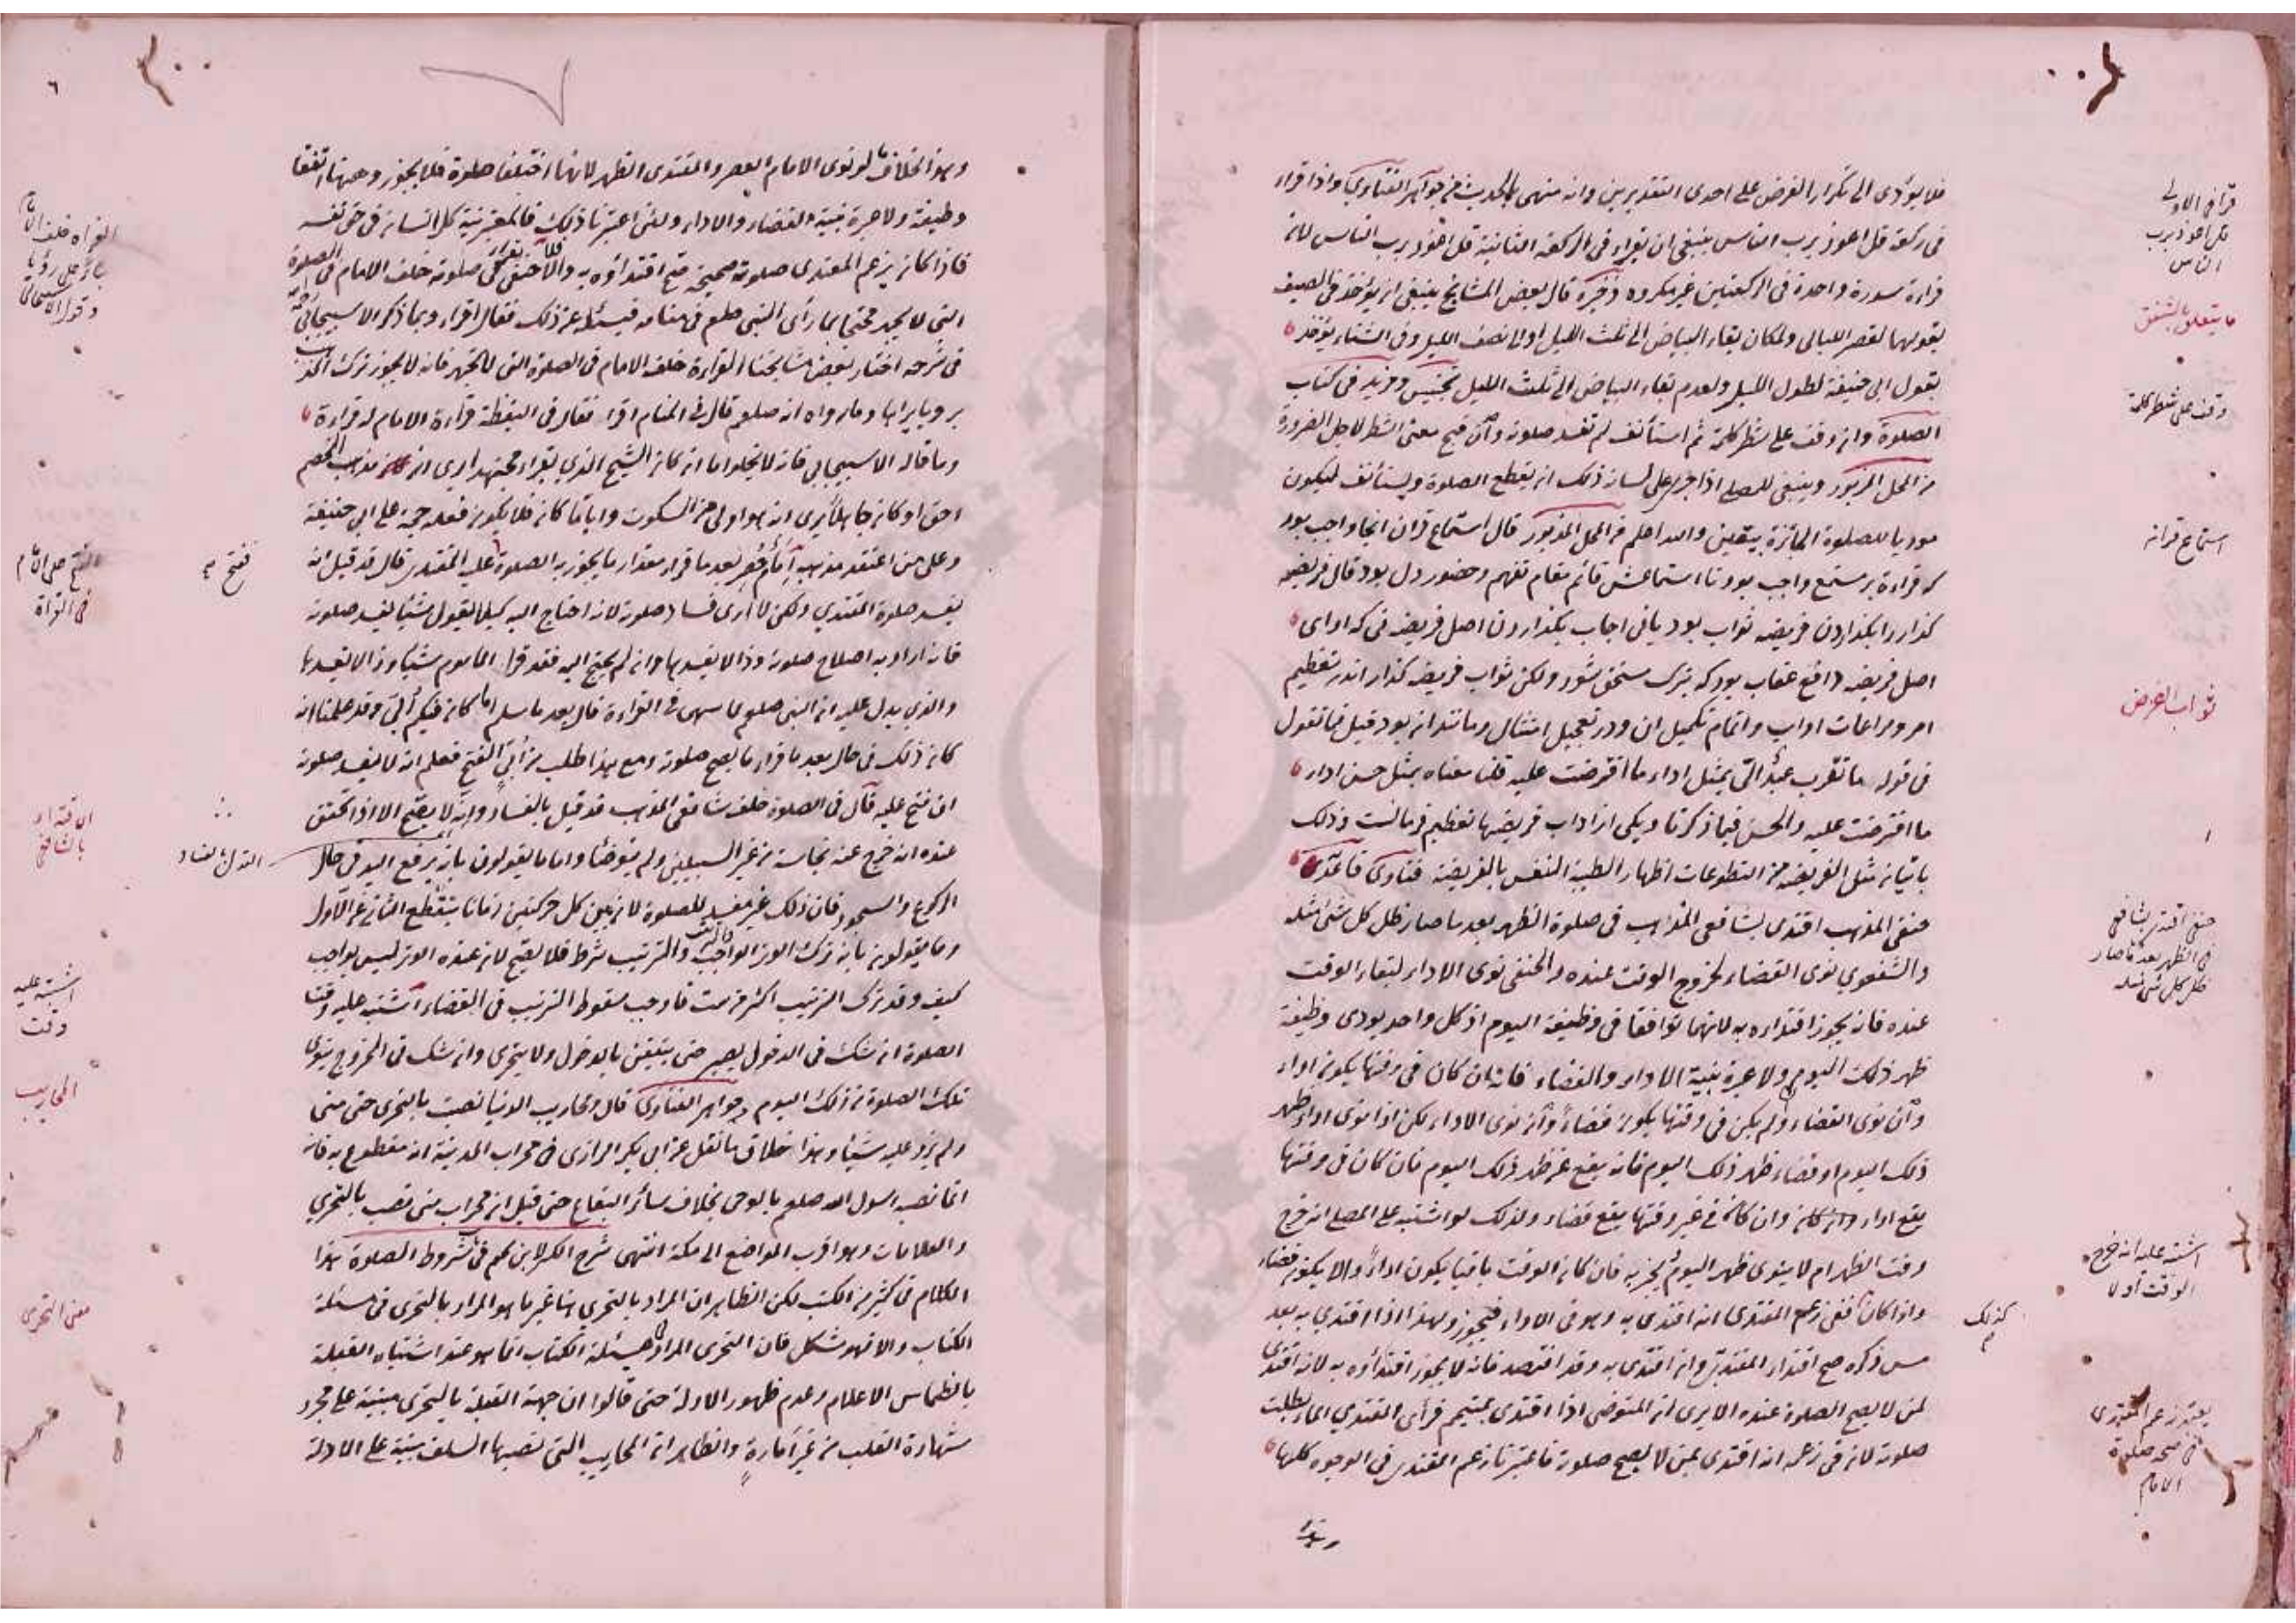 فلا يؤدى الى تكرار الفرض على احدى التقديرين وانه منهى بالحديث من جواهر الفتاوى واذا قراء
فى ركعة قل اعوذ برب الناس ينبغى ان يقراء فى الركعة الثانية قل اعوذ برب الناس لان
قراءة سورة واحدة فى الركعتين غير مكروه ذخيره قال بعض المشايخ ينبغى ان يؤخذ فى الصيف
بقولهما لقصر الليالى ولمكان بقاء البياض الى ثلث الليل او الى نصف الليل وفى الشتاء يؤخذ
بقول ابى حنيفة لطول الليل ولعدم بقاء البياض الى ثلث الليل تجنيس ومزيد فى كتاب
الصلوة وان وقف على شطر كلمة ثم استأنف لم تفسد صلوته وان قبح معنى الشطر لاجل الضرورة
من المحل المزبور وينبغى للمصلى اذا جرى على لسانه ذلك ان يقطع الصلوة ويستأنف ليكون
موديا للصلوة الجائزة بيقين والله اعلم من المحل المذبور قال استماع قران انجا واجب بود
كه قراءة بر مستمع واجب بود تا استماعش قائم مقام تفهم وحضور دل بود قال فريضه
كذار را بكذاردن فريضه ثواب بود يا نى اجاب بكذاردن اصل فريضه نى كه اداى
اصل فريضه دافع عقاب بود كه بترك مستحق شود ولكن ثواب فريضه كذار اندر تعظيم
امر ومراعات اداب واتمام تكميل ان ودر تعجيل امتثال ومانند ان بود قيل فما تقول
فى قوله ما تقرب عبد الى بمثل اداء ما افترضت عليه قلنا معناه بمثل حسن اداء
ما افترضت عليه والحسن فيما ذكرنا ويكى از اداب فريضها تعظيم فرمانست وذلك
باتيان مثل الفريضة من التطوعات اظهار الطيبة النفس بالفريضة فتاوى قاعدى
حنفى المذهب اقتدى بشافعى المذهب فى صلوة الظهر بعد ما صار ظل كل شئ مثله
والشفعوي نوى القضاء لخروج الوقت عنده والحنفى نوى الاداء لبقاء الوقت
عنده فانه يجوز اقتداءه به لانهما توافقا فى وظيفة اليوم اذ كل واحد يودى وظيفة
ظهر ذلك اليوم ولا عبرة بنية الاداء والقضاء فانه ان كان فى وقتها يكون اداء
وان نوى القضاء ولم يكن فى وقتها يكون قضاء وان نوى الاداء لكن اذا نوى اداء ظهر
ذلك اليوم او قضاء ظهر ذلك اليوم فانه يقع عن ظهر ذلك اليوم فان كان فى وقتها
يقع اداء وان كان فى غير وقتها يقع قضاء ولذلك لو اشتبه على المصلى انه خرج
وقت الظهر ام لا ينوى ظهر اليوم يجزيه فان كان الوقت باقيا يكون اداء والا يكون قضاء
واذا كان كذلك ففى زعم المقتدى انه اقتدى به وهو فى الاداء فيجوز ولهذا اذا اقتدى به بعد
مس ذكره صح اقتداء المقتدى وان اقتدى به وقد افتصد فانه لا يجوز اقتداؤه به لانه اقتدى
لمن لا يصح الصلوة عنده الا يرى ان المتوضى اذا اقتدى بمتيمم فرأى المقتدى الماء بطلت
صلوته لانه فى زعمه انه اقتدى بمن لا يصح صلوته فاعتبرنا زعم المقتدى فى الوجوه كلها
قرأ فى الاولى
قل اعوذ برب
الناس
ما يتعلق بالشفق
وقف على شطر كلمة
استماع قرانه
ثواب الفرض
حنفى اقتدى بشافعى
فى الظهر بعد ما صار
ظل كل شئ مثله
اشتبه عليه انه خرج
الوقت أولا
كذلك
يعتبر زعم المقتدى
فى صحة صلوة
الامام
٦
وهذا بخلاف ما لو نوى الامام العصر والمقتدى الظهر لانهما اختلفا صلوة فلا يجوز وههنا اتفقا
وظيفة ولا عبرة بنية القضاء والاداء ولئن اعتبرنا ذلك فالمعتبر نية كل انسان فى حق نفسه
فاذا كان يزعم المقتدى صلوته صحيحة صح اقتداؤه به والا فلا حنفى يقراء فى صلوته خلف الامام فى الصلوة
التى لا يجهر محتجا بما رأى النبى صلعم فى منامه فيسئله عن ذلك فقال اقراء وبما ذكر الاسبيجابى رحمه الله
فى شرحه اختار بعض مشايخنا القراءة خلف الامام فى الصلوة التى لا يجهر فانه لا يجوز ترك المذهب
برويا يراها وما رواه انه صلعم قال فى المنام اقرا فقال فى اليقظة قراءة الامام له قراءة
وما قاله الاسبيجابى فانه لا يخلو اما ان كان الشيخ الذى يقراء مجتهدا يرى ان مذهب الخصم
احق او كان جاهلا يرى انه هو اولى من السكوت وايا ما كان فلا يكون فعله حجة على ابى حنيفة
وعلى من اعتقد مذهبه امام حصر بعد ما قراء مقدار ما يجوز به الصلوة عليه المقتدى قال قد قيل انه
يفسد صلوة المقتدى ولكن لا أرى فساد صلوته لانه احتاج اليه كيلا يقول شيئا يفسد صلوته
فانه اراد به اصلاح صلوته وذا لا يفسدها وانه لم يحتج اليه فقد قرا الماموم شيئا وذا لا يفسدها
والذى يدل عليه ان النبى صلعم لما سهى فى القراءة قال بعد ما سلم اما كان فيكم أبى وقد علمنا انه
كان ذلك فى حال بعد ما قراء ما يصح صلوته ومع هذا طلب من أبى الفتح فعلم انه لا يفسد صلوته
ان فتح عليه قال فى الصلوة خلف شافعى المذهب قد قيل بالفساد وانه لا يصح الا اذا تحقق
عنده انه خرج عنه نجاسة من غير السبيلين ولم يتوضأ واما ما يقولون بانه يرفع اليد فى حال
الركوع والسجود فان ذلك غير مفسد للصلوة لان بين كل حركتين زمانا ينقطع الثانى عن الاول
وما يقولون بانه ترك الوتر الواجب والترتيب شرط فلا يصح لان عنده الوتر ليس بواجب
كيف وقد ترك الترتيب اكثر من ست فاوجب سقوط الترتيب فى القضاء اشتبه عليه وقت
الصلوة ان شك فى الدخول يصبر حتى يتيقن بالدخول ولا يتحرى وان شك فى الخروج ينوى
تلك الصلوة من ذلك اليوم جواهر الفتاوى قال ومحاريب الدنيا نصبت بالتحرى حتى منى
ولم يزد عليه شيئا وهذا خلاف ما نقل عن ابى بكر الرازى فى محراب المدينة انه مقطوع به فانه
انما نصبه رسول الله صلعم بالوحى بخلاف سائر البقاع حتى قيل ان محراب منى نصب بالتحري
والعلامات وهو اقرب المواضع الى مكة انتهى شرح الكنز لابن نجم فى شروط الصلوة هذا
الكلام فى كثير من الكتب لكن الظاهر ان المراد بالتحرى هنا غير ما هو المراد بالتحرى فى مسئلة
الكتاب والا فهو مشكل فان التحرى المراد فى مسئلة الكتاب انما هو عند اشتباه القبلة
بانطماس الاعلام وعدم ظهور الادلة حتى قالوا ان جهة القبلة بالتحرى مبنية على مجرد
شهادة القلب من غير أمارة والظاهر ان المحاريب التى نصبها السلف مبنية على الادلة
القراة خلف الامام
الفتح على الامام
فى القراة
فتح
الاقتداء
بالشافعى
اشتبه عليه
وقت
المحاريب
معنى التحرى